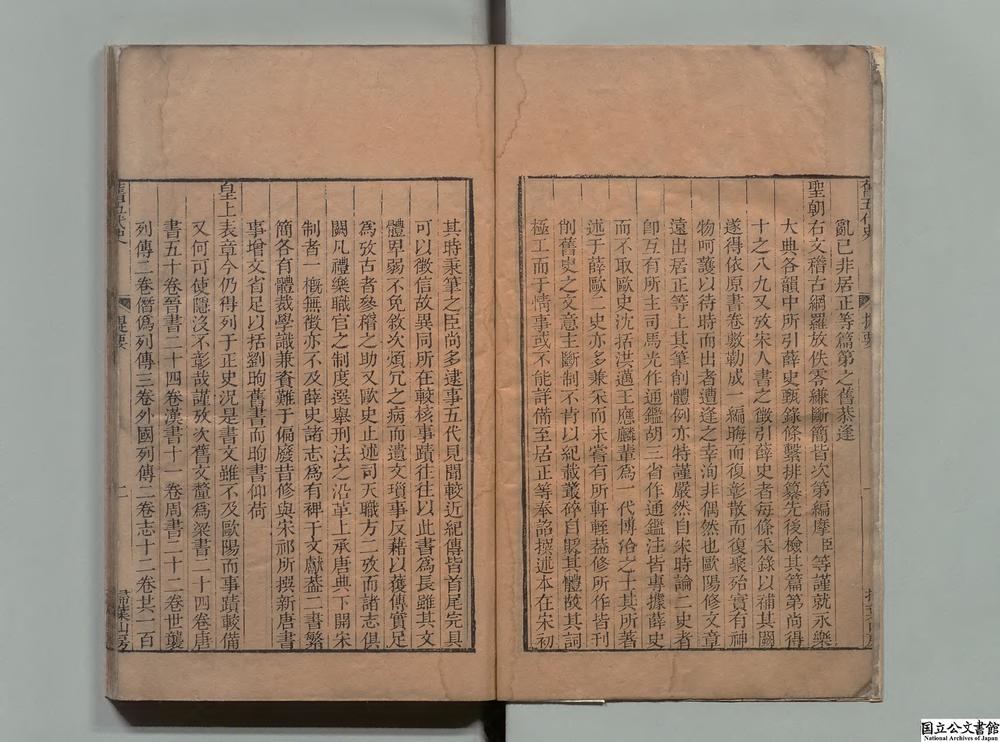 舊五代史 提要 一
亂已非居正等篇第之舊恭逢
聖朝右文稽古網羅放佚零縑斷簡皆次第編摩臣等謹就永樂
大典各韻中所引薛史甄錄條繫排纂先後檢其篇第尚得
十之八九又攷宋人書之徵引薛史者每條采錄以補其闕
遂得依原書卷數勒成一編晦而復彰散而復聚殆實有神
物呵護以待時而出者遭逢之幸洵非偶然也歐陽修文章
遠出居正等上其筆削體例亦特謹嚴然自宋時論二史者
卽互有所主司馬光作通鑑胡三省作通鑑注皆專據薛史
而不取歐史沈括洪邁王應麟輩為一代博洽之士其所著
述于薛歐二史亦多兼采而未嘗有所軒輊葢修所作皆刊
削舊史之文意主斷制不肯以紀載叢碎自貶其體故其詞
極工而于情事或不能詳備至居正等奉詔撰述本在宋初
其時秉筆之臣尚多逮事五代見聞較近紀傳皆首尾完具
可以徵信故異同所在較核事蹟往往以此書為長雖其文
體卑弱不免敘次煩冗之病而遺文瑣事反藉以獲傳實足
為攷古者參稽之助又歐史止述司天職方二攷而諸志俱
闕凡禮樂職官之制度選舉刑法之沿革上承唐典下開宋
制者一槪無徵亦不及薛史諸志為有裨于文獻葢二書繁
簡各有體裁學識兼資難于偏廢昔修與宋祁所撰新唐書
事增文省足以括劉昫舊書而昫書仰荷
皇上表章今仍得列于正史況是書文雖不及歐陽而事蹟較備
又何可使隱沒不彰哉謹攷次舊文釐為梁書二十四卷唐
書五十卷晉書二十四卷漢書十一卷周書二十二卷世襲
列傳二卷僭偽列傳三卷外國列傳二卷志十二卷共一百
舊五代史 提要 二 掃葉山房
国立公文書館
National Archives of Japan